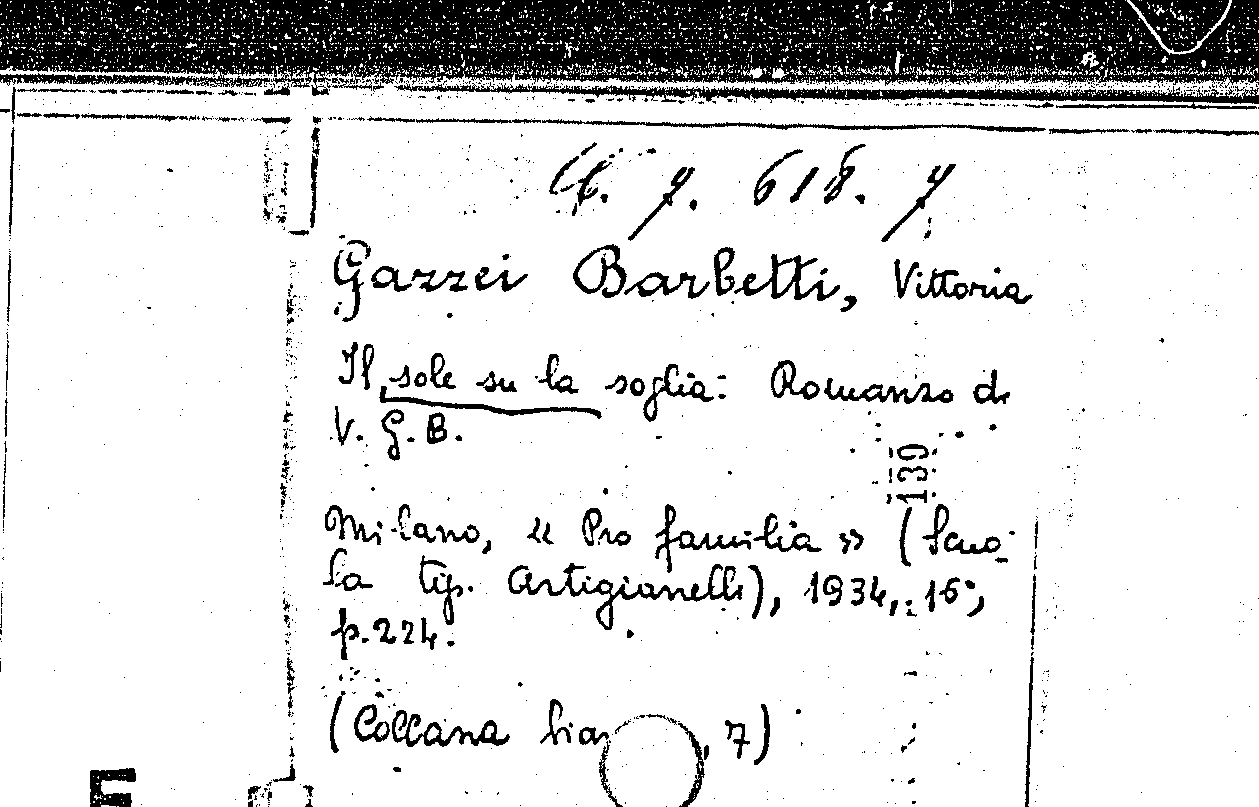 G. 9. 618. 9
Gazzei Barbetti, Vittoria
Il sole su la soglia: Romanzo di
V. G. B.
139
Milano, « Pro familia » (Scuo-
la tip. Artigianelli), 1934, 16°,
p. 224.
(Collana , 7)
E